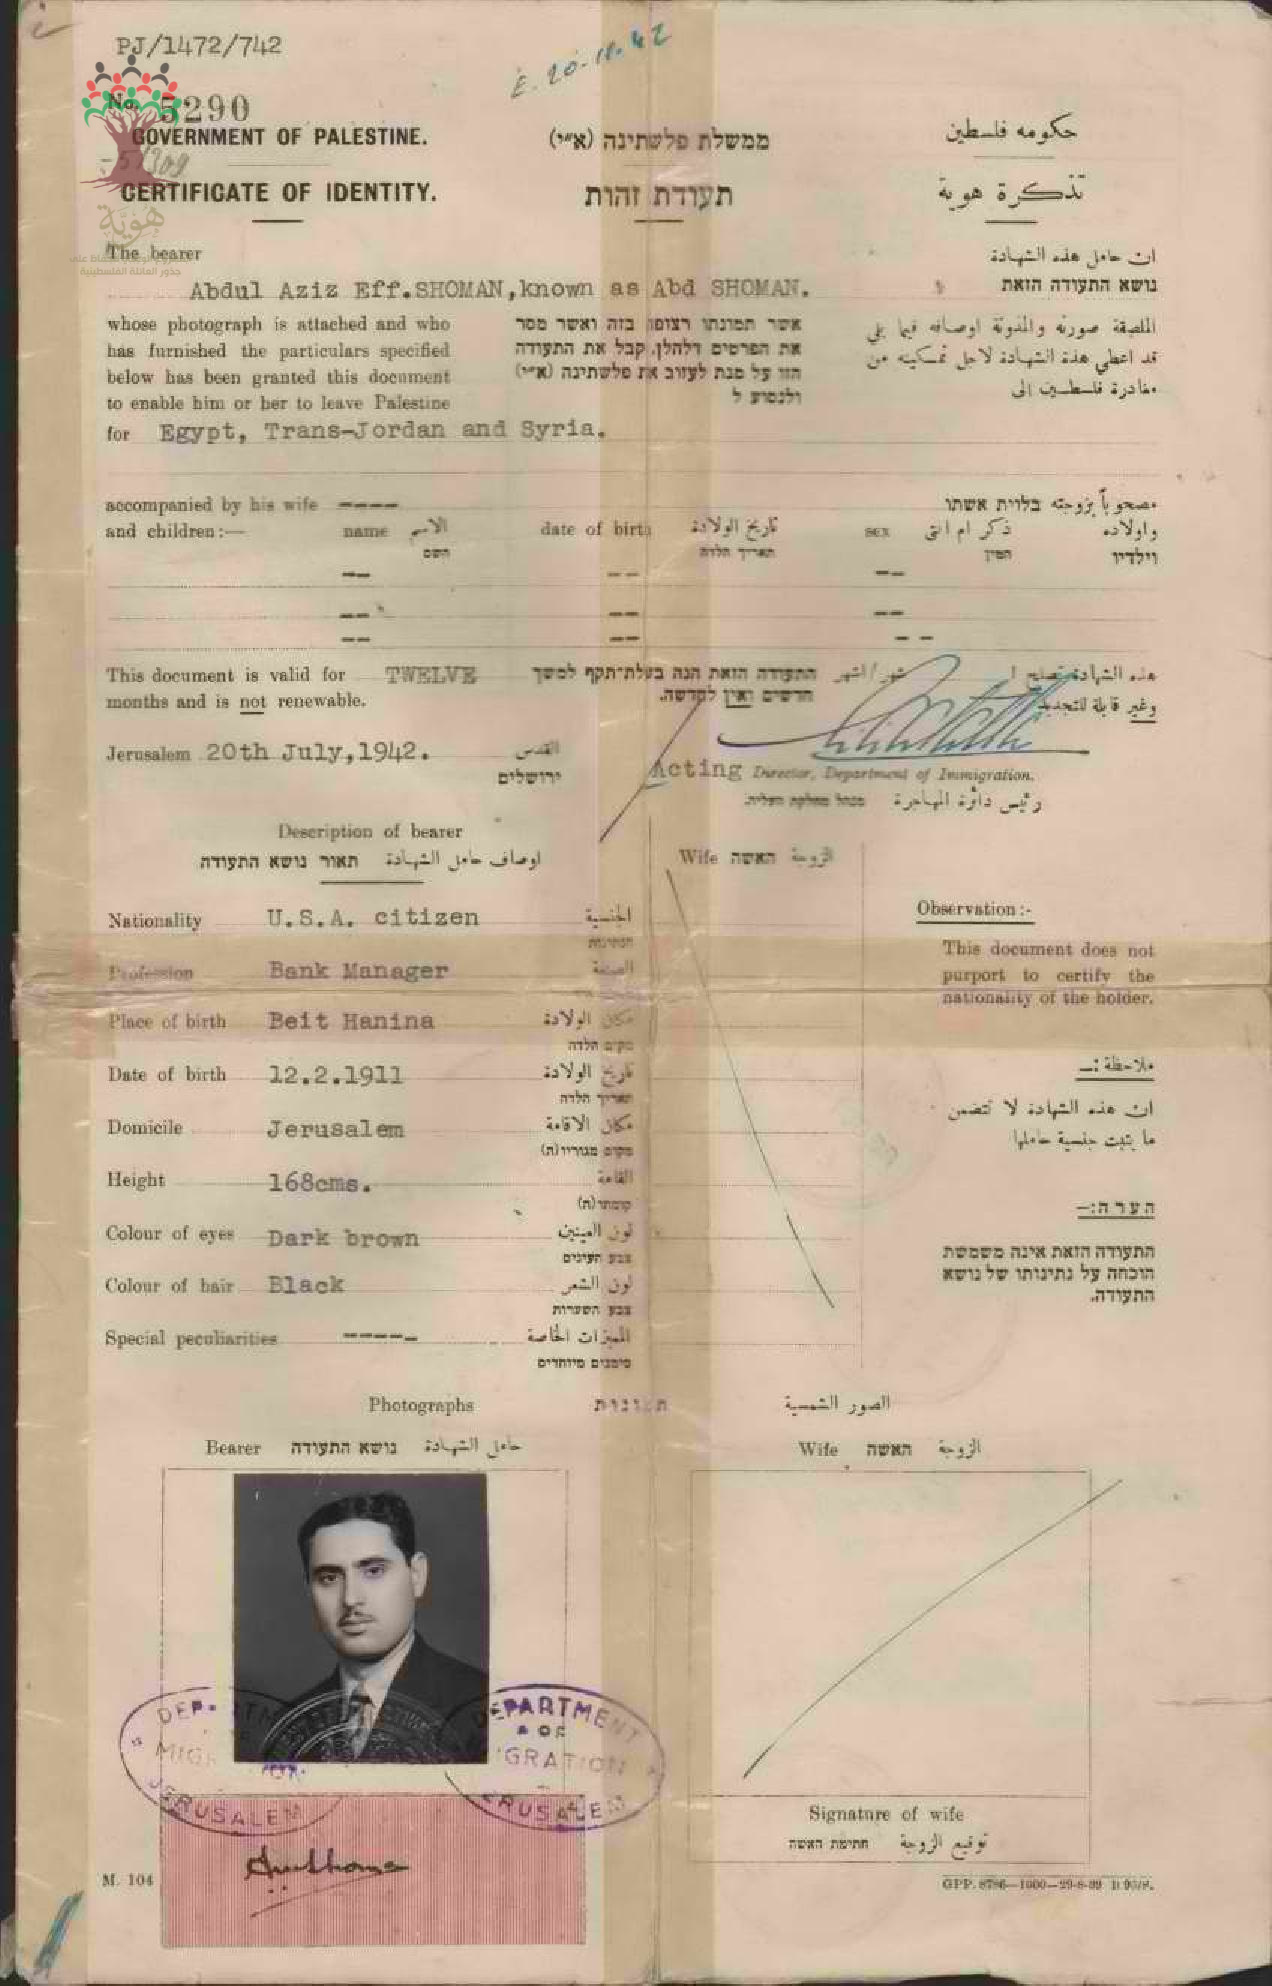 PJ/1472/742
E. 20.11.42
No. 5290
GOVERNMENT OF PALESTINE. ממשלת פלשתינה (א״י) حكومه فلسطين
CERTIFICATE OF IDENTITY. תעודת זהות تذكرة هوية
هويّة
جذور العائلة الفلسطينية
The bearer ان حامل هذه الشهادة
נושא התעודה הזאת
Abdul Aziz Eff.SHOMAN,known as Abd SHOMAN.
whose photograph is attached and who אשר תמונתו רצופה בזה ואשר מסר الملصقة صورته والمدونة اوصافه فيما يلي
has furnished the particulars specified את הפרטים דלהלן, קבל את התעודה قد اعطي هذه الشهادة لاجل تمكينه من
below has been granted this document הזו על מנת לעזוב את פלשתינה (א״י) مغادرة فلسطين الى
to enable him or her to leave Palestine ולנסוע ל
for Egypt, Trans-Jordan and Syria.
accompanied by his wife ---- مصحوباً بزوجته בלוית אשתו
and children:— name الاسم date of birth تاريخ الولادة sex ذكر ام انثى واولاده
השם תאריך הלדה המין וילדיו
-- -- --
-- -- --
-- -- --
This document is valid for TWELVE התעודה הזאת הנה בעלת-תקף למשך شهر/اشهر هذه الشهادة تصلح ل
months and is not renewable. חדשים ואין לחדשה. وغير قابلة للتجديد
Jerusalem 20th July,1942. القدس
ירושלים
Acting Director, Department of Immigration.
מנהל מחלקת העליה. رئيس دائرة المهاجرة
Description of bearer
תאור נושא התעודה اوصاف حامل الشهادة Wife האשה الزوجة
Nationality U.S.A. citizen الجنسية
הנתינות
Profession Bank Manager الصنعة
Place of birth Beit Hanina مكان الولادة
מקום הלדה
Date of birth 12.2.1911 تاريخ الولادة
תאריך הלדה
Domicile Jerusalem مكان الاقامة
מקום מגוריו(ה)
Height 168cms. القامة
קומתו(ה)
Colour of eyes Dark brown لون العينين
צבע העינים
Colour of hair Black لون الشعر
צבע השערות
Special peculiarities ----- المميزات الخاصة
סימנים מיוחדים
Observation :-
This document does not
purport to certify the
nationality of the holder.
ملاحظة :ـ
ان هذه الشهادة لا تتضمن
ما يثبت جنسية حاملها
הערה:—
התעודה הזאת אינה משמשת
הוכחה על נתינותו של נושא
התעודה.
Photographs תמונות الصور الشمسية
Bearer נושא התעודה حامل الشهادة Wife האשה الزوجة
DEPARTMENT
OF
MIGRATION
JERUSALEM
DEPARTMENT
OF
IGRATION
JERUSALEM
Signature of wife
חתימת האשה توقيع الزوجة
M. 104